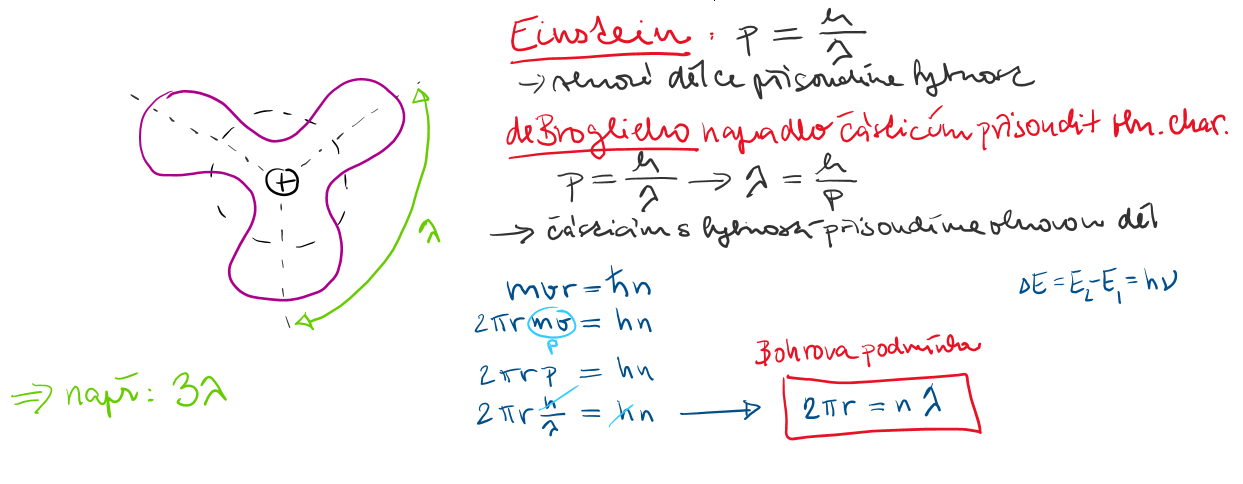 Einstein: p = h/λ
→ vlnové délce přisoudíme hybnost
deBroglieho napadlo částicím přisoudit vln. char.
p = h/λ → λ = h/p
→ částicím s hybností přisoudíme vlnovou dél
+
λ
mvr = ħn
2πr mv = hn
p
2πr p = hn
2πr h/λ = hn →
ΔE = E₂-E₁ = hν
Bohrova podmínka
2πr = n λ
⇒ např: 3λ